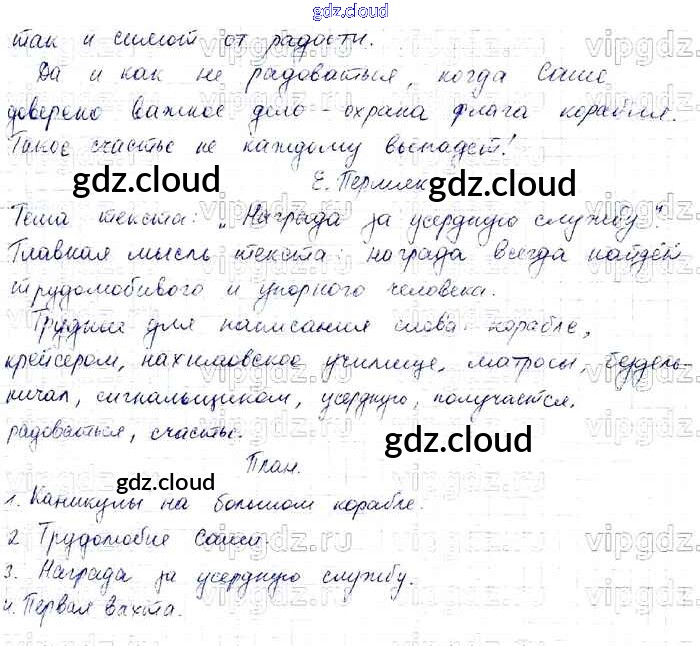 gdz.cloud
так и сияют от радости.
Да и как не радоваться, когда Саше
доверено важное дело - охрана флага корабля.
Такое счастье не каждому выпадет!
Е. Пермяк
gdz.cloud gdz.cloud
Тема текста: „Награда за усердную службу".
Главная мысль текста: награда всегда найдёт
трудолюбивого и упорного человека.
Трудные для написания слова: корабле,
крейсером, нахимовское училище, матросы, бездель-
ничал, сигнальщиком, усердную, получается,
радоваться, счастье.
gdz.cloud gdz.cloud
План.
gdz.cloud
1. Каникулы на большом корабле.
2 Трудолюбие Саши.
3. Награда за усердную службу.
4. Первая вахта.
vipgdz.ru